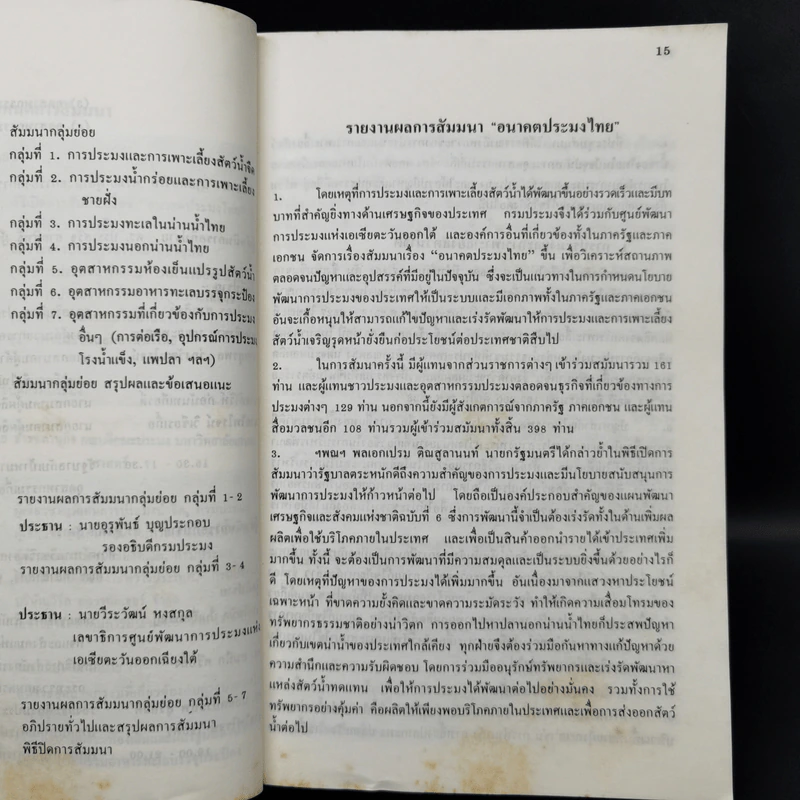 สัมมนากลุ่มย่อย
กลุ่มที่ 1. การประมงและการเพาะเลี้ยงสัตว์น้ำจืด
กลุ่มที่ 2. การประมงน้ำกร่อยและการเพาะเลี้ยง
ชายฝั่ง
กลุ่มที่ 3. การประมงทะเลในน่านน้ำไทย
กลุ่มที่ 4. การประมงนอกน่านน้ำไทย
กลุ่มที่ 5. อุตสาหกรรมห้องเย็นแปรรูปสัตว์น้ำ
กลุ่มที่ 6. อุตสาหกรรมอาหารทะเลบรรจุกระป๋อง
กลุ่มที่ 7. อุตสาหกรรมที่เกี่ยวข้องกับการประมง
อื่นๆ (การต่อเรือ, อุปกรณ์การประมง
โรงน้ำแข็ง, แพปลา ฯลฯ)
สัมมนากลุ่มย่อย สรุปผลและข้อเสนอแนะ
รายงานผลการสัมมนากลุ่มย่อย กลุ่มที่ 1-2
ประธาน : นายอุรุพันธ์ บุญประกอบ
รองอธิบดีกรมประมง
รายงานผลการสัมมนากลุ่มย่อย กลุ่มที่ 3-4
ประธาน : นายวีระวัฒน์ หงสกุล
เลขาธิการศูนย์พัฒนาการประมงแห่ง
เอเซียตะวันออกเฉียงใต้
รายงานผลการสัมมนากลุ่มย่อย กลุ่มที่ 5-7
อภิปรายทั่วไปและสรุปผลการสัมมนา
พิธีปิดการสัมมนา
15
รายงานผลการสัมมนา "อนาคตประมงไทย"
1. โดยเหตุที่การประมงและการเพาะเลี้ยงสัตว์น้ำได้พัฒนาขึ้นอย่างรวดเร็วและมีบท
บาทที่สำคัญยิ่งทางด้านเศรษฐกิจของประเทศ กรมประมงจึงได้ร่วมกับศูนย์พัฒนา
การประมงแห่งเอเซียตะวันออกใต้ และองค์การอื่นที่เกี่ยวข้องทั้งในภาครัฐและภาค
เอกชน จัดการเรื่องสัมมนาเรื่อง "อนาคตประมงไทย" ขึ้น เพื่อวิเคราะห์สถานภาพ
ตลอดจนปัญหาและอุปสรรค์ที่มีอยู่ในปัจจุบัน ซึ่งจะเป็นแนวทางในการกำหนดนโยบาย
พัฒนาการประมงของประเทศให้เป็นระบบและมีเอกภาพทั้งในภาครัฐและภาคเอกชน
อันจะเกื้อหนุนให้สามารถแก้ไขปัญหาและเร่งรัดพัฒนาให้การประมงและการเพาะเลี้ยง
สัตว์น้ำเจริญรุดหน้ายั่งยืนก่อประโยชน์ต่อประเทศชาติสืบไป
2. ในการสัมมนาครั้งนี้ มีผู้แทนจากส่วนราชการต่างๆ เข้าร่วมสัมมนารวม 161
ท่าน และผู้แทนชาวประมงและอุตสาหกรรมประมงตลอดจนธุรกิจที่เกี่ยวข้องทางการ
ประมงต่างๆ 129 ท่าน นอกจากนี้ยังมีผู้สังเกตการณ์จากภาครัฐ ภาคเอกชน และผู้แทน
สื่อมวลชนอีก 108 ท่านรวมผู้เข้าร่วมสมัมนาทั้งสิ้น 398 ท่าน
3. ฯพณฯ พลเอกเปรม ติณสูลานนท์ นายกรัฐมนตรีได้กล่าวย้ำในพิธีเปิดการ
สัมมนาว่ารัฐบาลตระหนักดีถึงความสำคัญของการประมงและมีนโยบายสนับสนุนการ
พัฒนาการประมงให้ก้าวหน้าต่อไป โดยถือเป็นองค์ประกอบสำคัญของแผนพัฒนา
เศรษฐกิจและสังคมแห่งชาติฉบับที่ 6 ซึ่งการพัฒนานี้จำเป็นต้องเร่งรัดทั้งในด้านเพิ่มผล
ผลิตเพื่อใช้บริโภคภายในประเทศ และเพื่อเป็นสินค้าออกนำรายได้เข้าประเทศเพิ่ม
มากขึ้น ทั้งนี้ จะต้องเป็นการพัฒนาที่มีความสมดุลและเป็นระบบยิ่งขึ้นด้วยอย่างไรก็
ดี โดยเหตุที่ปัญหาของการประมงได้เพิ่มมากขึ้น อันเนื่องมาจากแสวงหาประโยชน์
เฉพาะหน้า ที่ขาดความยั้งคิดและขาดความระมัดระวัง ทำให้เกิดความเสื่อมโทรมของ
ทรัพยากรธรรมชาติอย่างน่าวิตก การออกไปหาปลานอกน่านน้ำไทยก็ประสพปัญหา
เกี่ยวกับเขตน่าน้ำของประเทศใกล้เคียง ทุกฝ่ายจึงต้องร่วมมือกันหาทางแก้ปัญหาด้วย
ความสำนึกและความรับผิดชอบ โดยการร่วมมืออนุรักษ์ทรัพยากรและเร่งรัดพัฒนาหา
แหล่งสัตว์น้ำทดแทน เพื่อให้การประมงได้พัฒนาต่อไปอย่างมั่นคง รวมทั้งการใช้
ทรัพยากรอย่างคุ้มค่า คือผลิตให้เพียงพอบริโภคภายในประเทศและเพื่อการส่งออกสัตว์
น้ำต่อไป